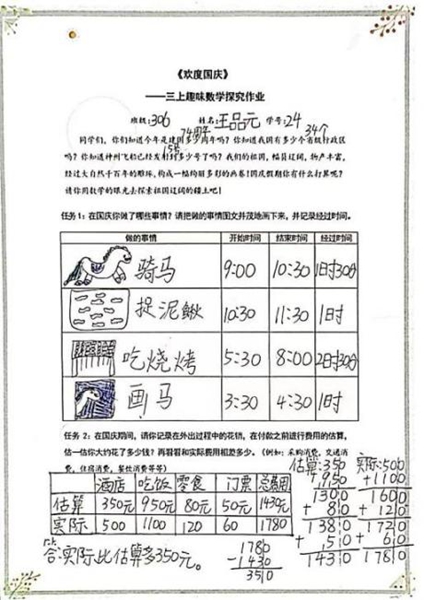 《欢度国庆》
——三上趣味数学探究作业
班级:306 姓名:王品元 学号:24
74周年 34个
同学们，你们知道今年是建国多少周年吗？你知道我国有多少个省级行政区
15号
吗？你知道神州飞船已经发射到多少号了吗？我们的祖国，幅员辽阔，物产丰富，
经过大自然千百年的雕琢，构成一幅绚丽多彩的画卷！国庆假期你有什么打算呢？
请你用数学的眼光去探索祖国辽阔的疆土吧！
任务1：在国庆你做了哪些事情？请把做的事情图文并茂地画下来，并记录经过时间。
做的事情 开始时间 结束时间 经过时间
骑马 9:00 10:30 1时30分
捉泥鳅 10:30 11:30 1时
吃烧烤 5:30 8:00 2时30分
画马 3:30 4:30 1时
任务 2：在国庆期间，请你记录在外出过程中的花销，在付款之前进行费用的估算，
估一估你大约花了多少钱？再看看和实际费用相差多少。（例如：采购消费，交通消
费，住宿消费，餐饮消费等等）
估算:350 实际:500
+950 +1100
1300 1600
+80 +120
1380 1720
+50 +60
1430 1780
酒店 吃饭 零食 门票 总费用
估算 350元 950元 80元 50元 1430元
实际 500 1100 120 60 1780
答:实际比估算多350元。
1780
-1430
350